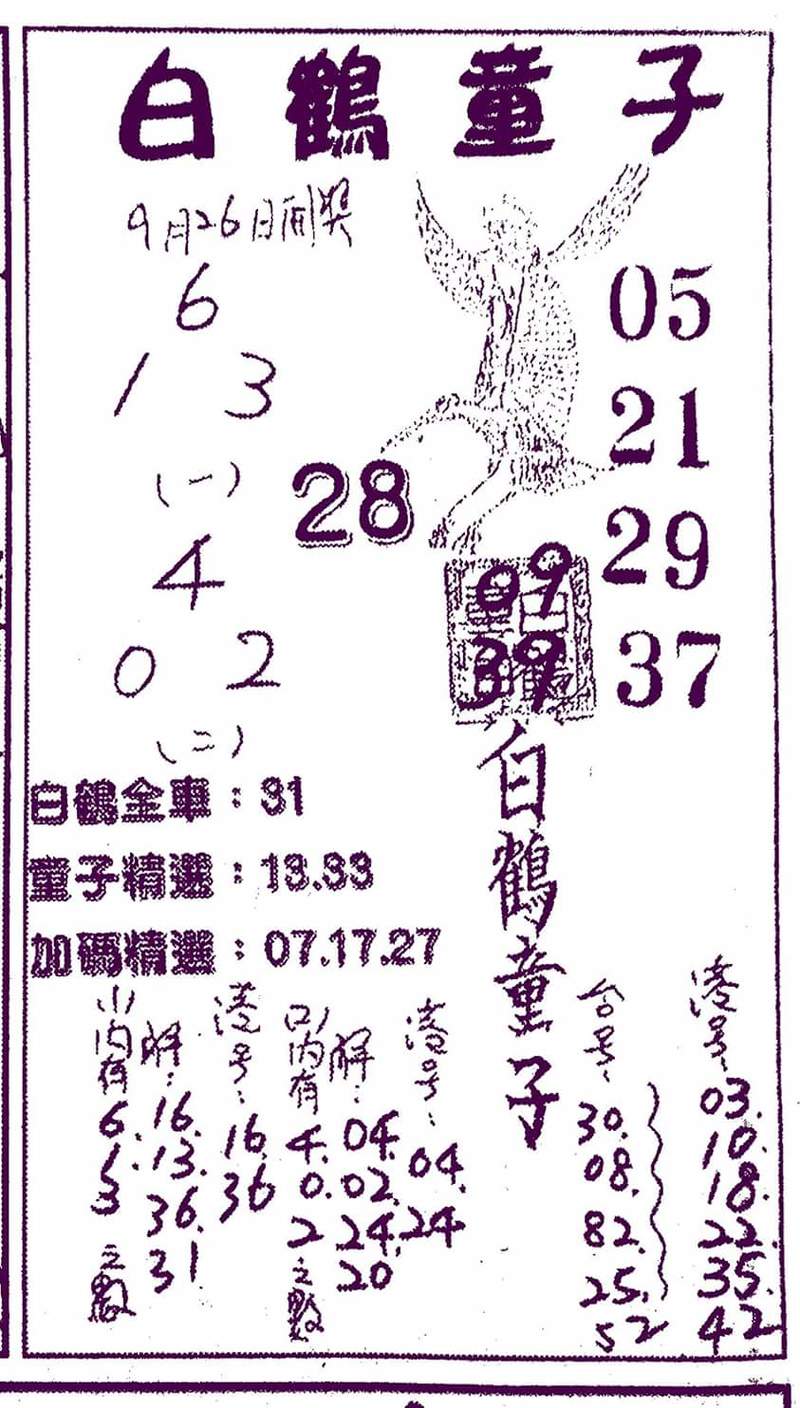 白鶴童子
9月26日開獎
6
1 3
(一)
4
0 2
(二)
28
05
21
29
37
09
39
白鶴童子
白鶴全車：31
童子精選：13.33
加碼精選：07.17.27
(一)內有
6.
1.
3
之數
解：
16.
13.
36.
31
港号：
16.
36
(二)內有
4.
0.
2
之數
解：
04.
02.
24.
20
港号：
04.
24
台号：
30.
08.
82.
25.
52
港号：
03.
10.
18.
22.
35.
42